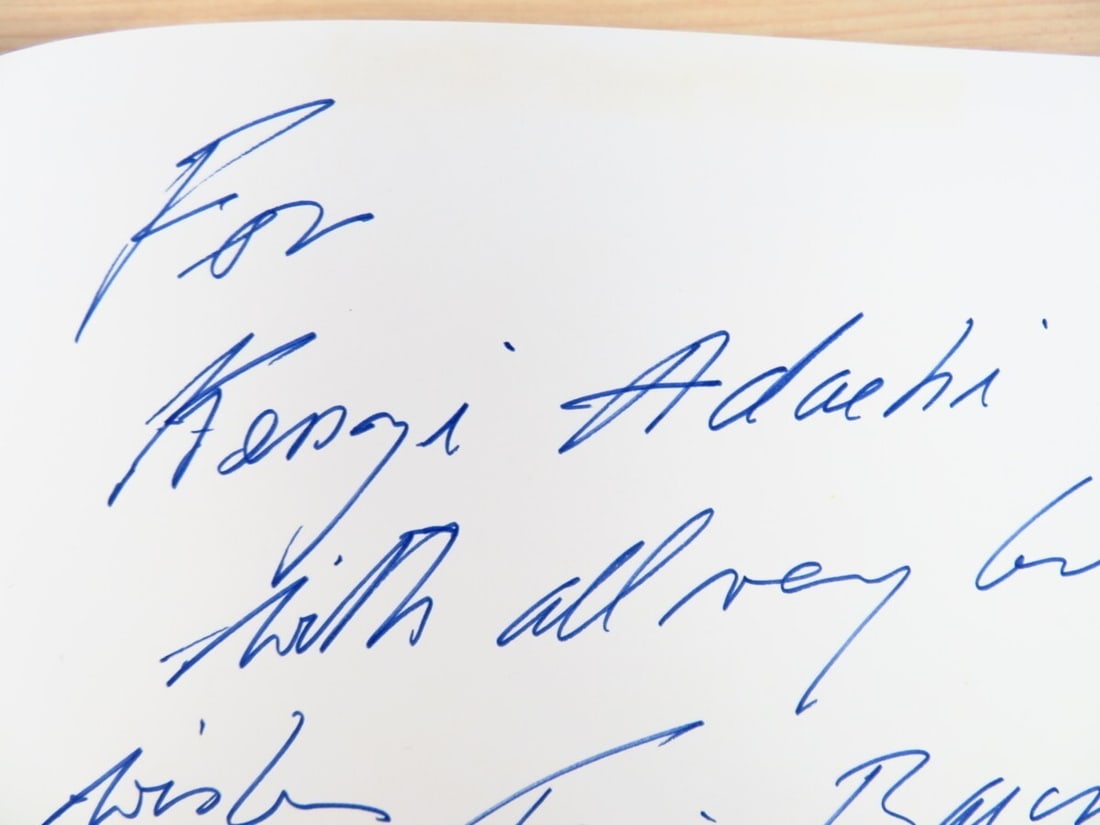 For
Kenji Adachi
with all very
wishes